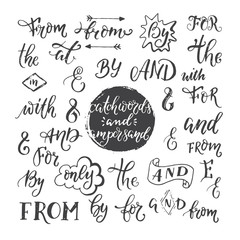 From from By FOR
the at & & the
in & BY AND with
with & catchwords & & FOR
& AND and & and
For ampersand FROM
By only the AND &
FROM by for AND from